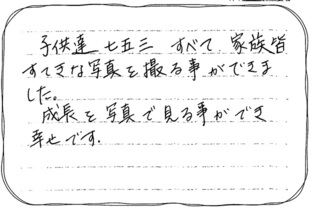 子供達 七五三 すべて 家族皆
すてきな写真を撮る事ができま
した。
成長を写真で見る事ができ
幸せです.